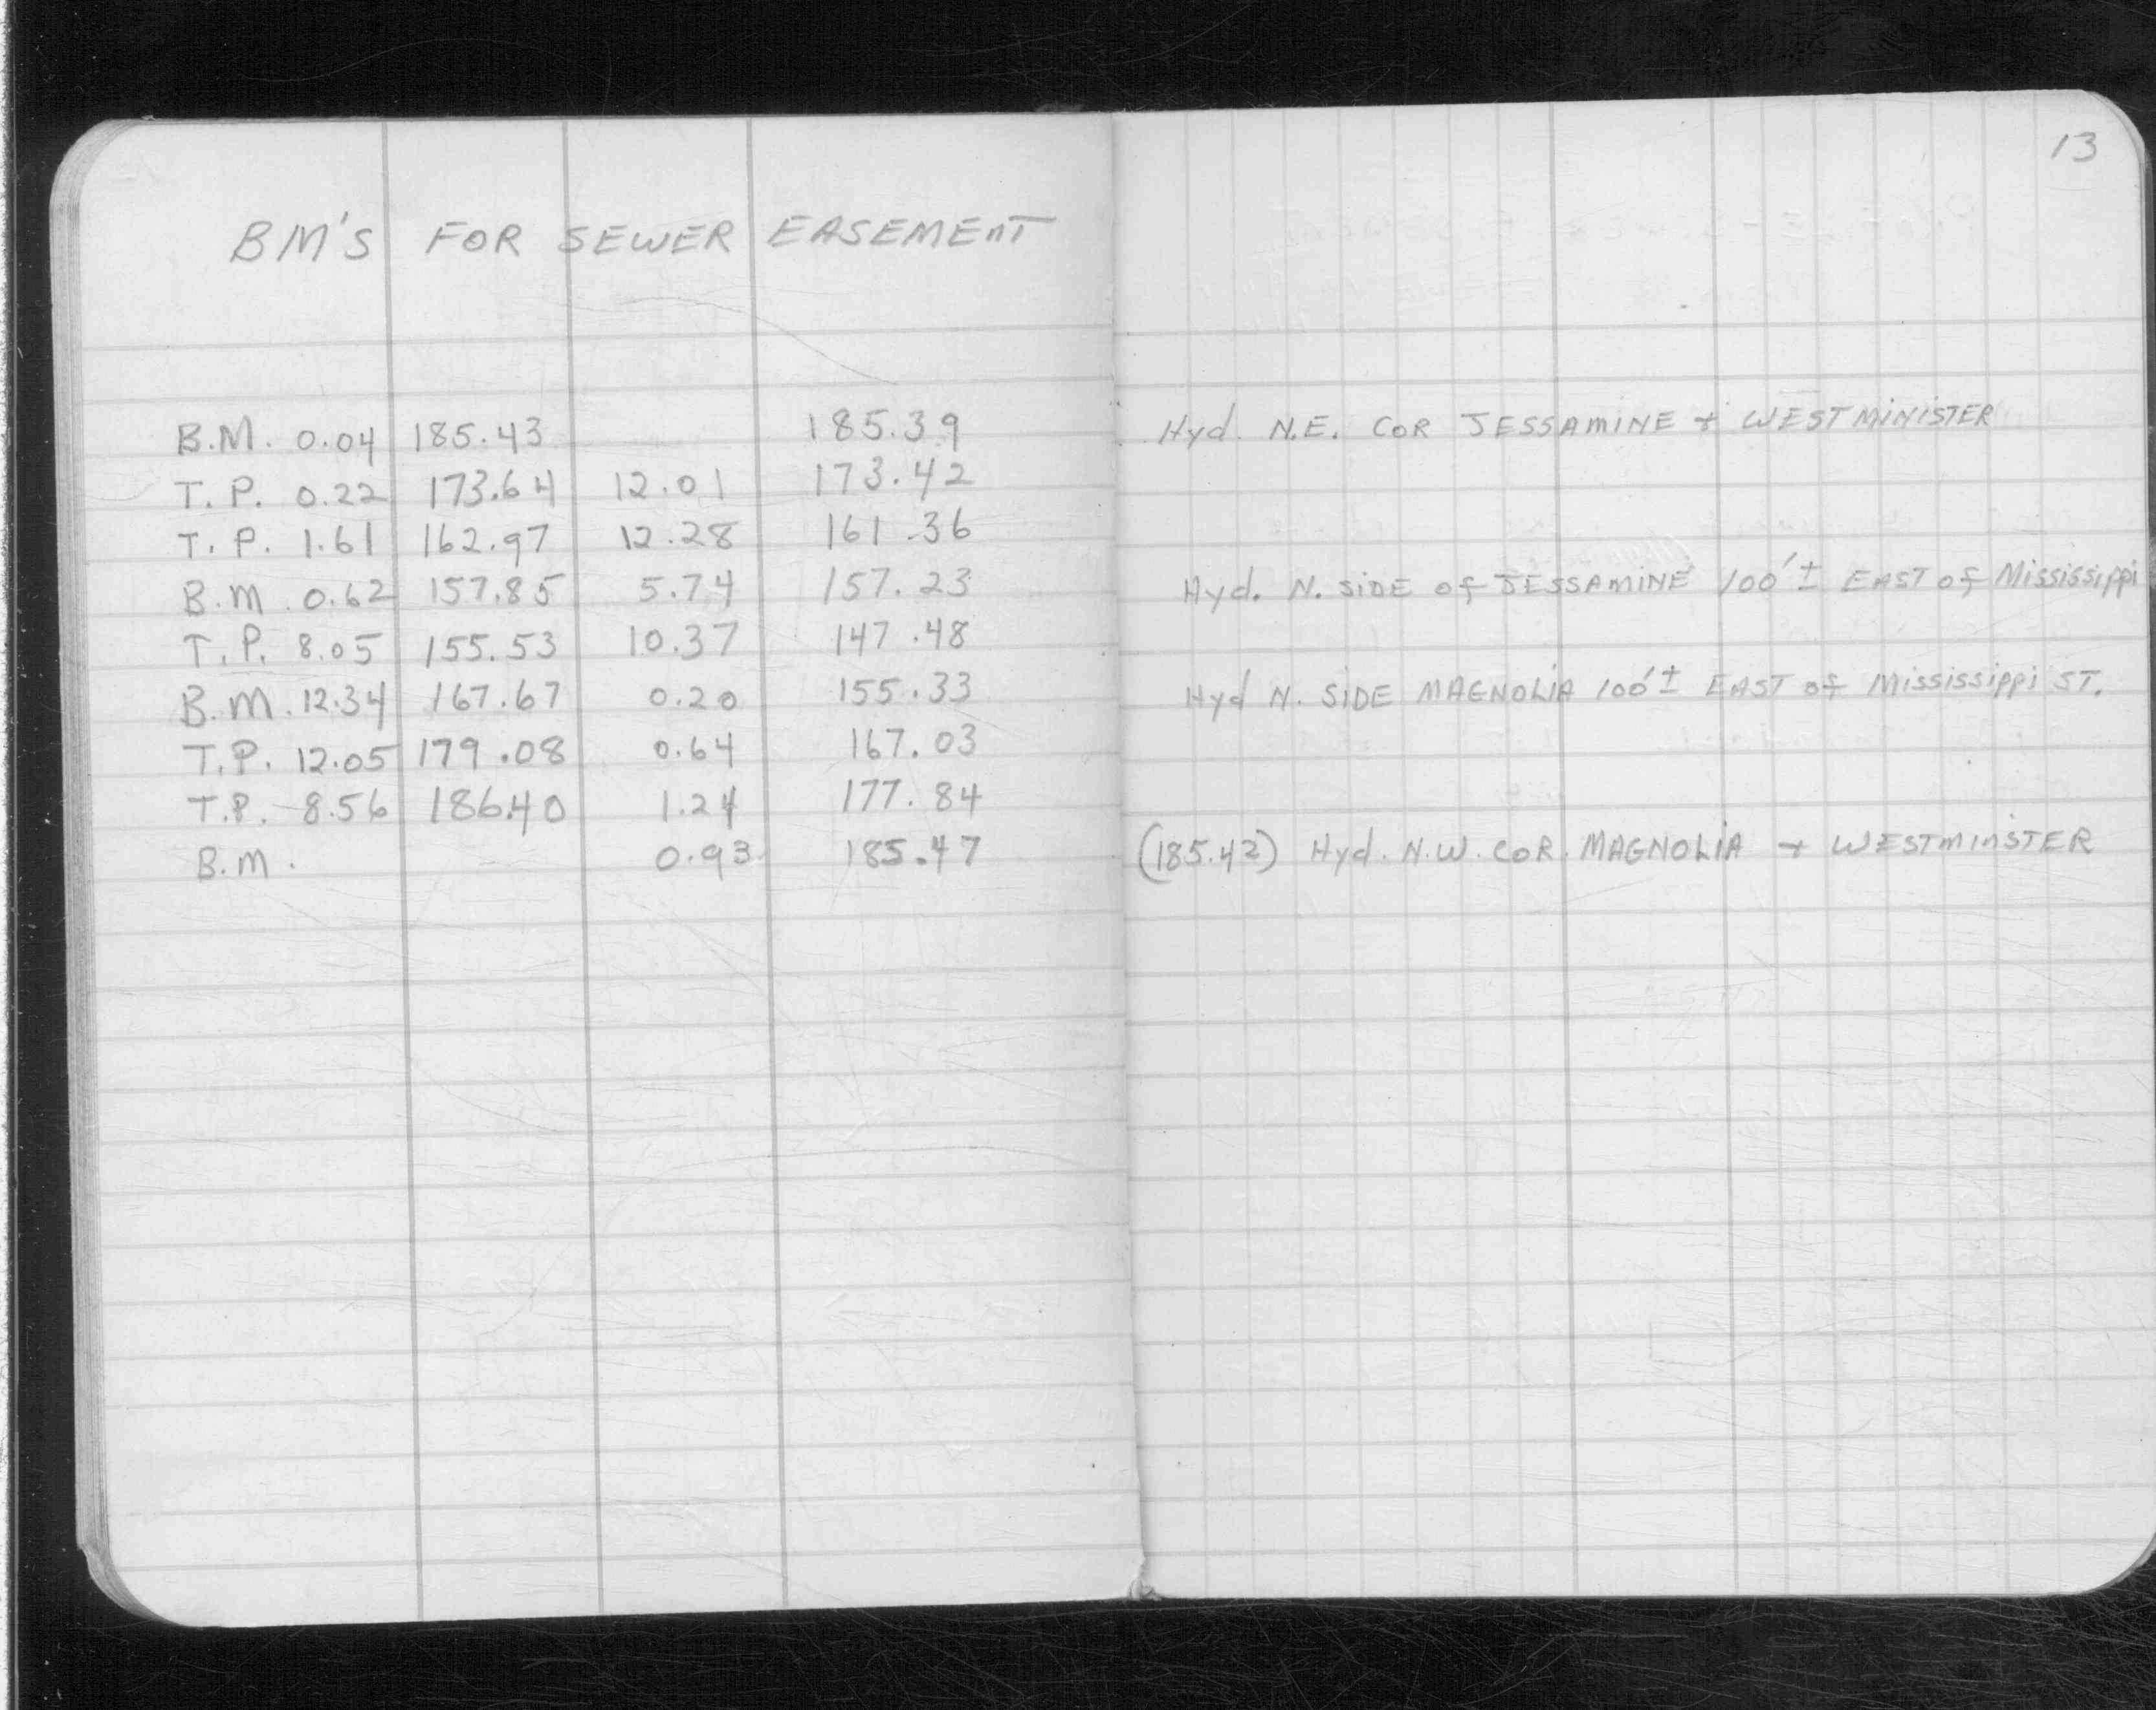 13
BM'S FOR SEWER EASEMENT
B.M. 0.04 185.43 185.39 Hyd. N.E. COR JESSAMINE + WESTMINISTER
T.P. 0.22 173.64 12.01 173.42
T.P. 1.61 162.97 12.28 161.36
B.M. 0.62 157.85 5.74 157.23 Hyd. N. SIDE of JESSAMINE 100'± EAST of Mississippi
T.P. 8.05 155.53 10.37 147.48
B.M. 12.34 167.67 0.20 155.33 Hyd N. SIDE MAGNOLIA 100'± EAST of Mississippi ST.
T.P. 12.05 179.08 0.64 167.03
T.P. 8.56 186.40 1.24 177.84
B.M. 0.93 185.47 (185.42) Hyd. N.W. COR. MAGNOLIA + WESTMINSTER